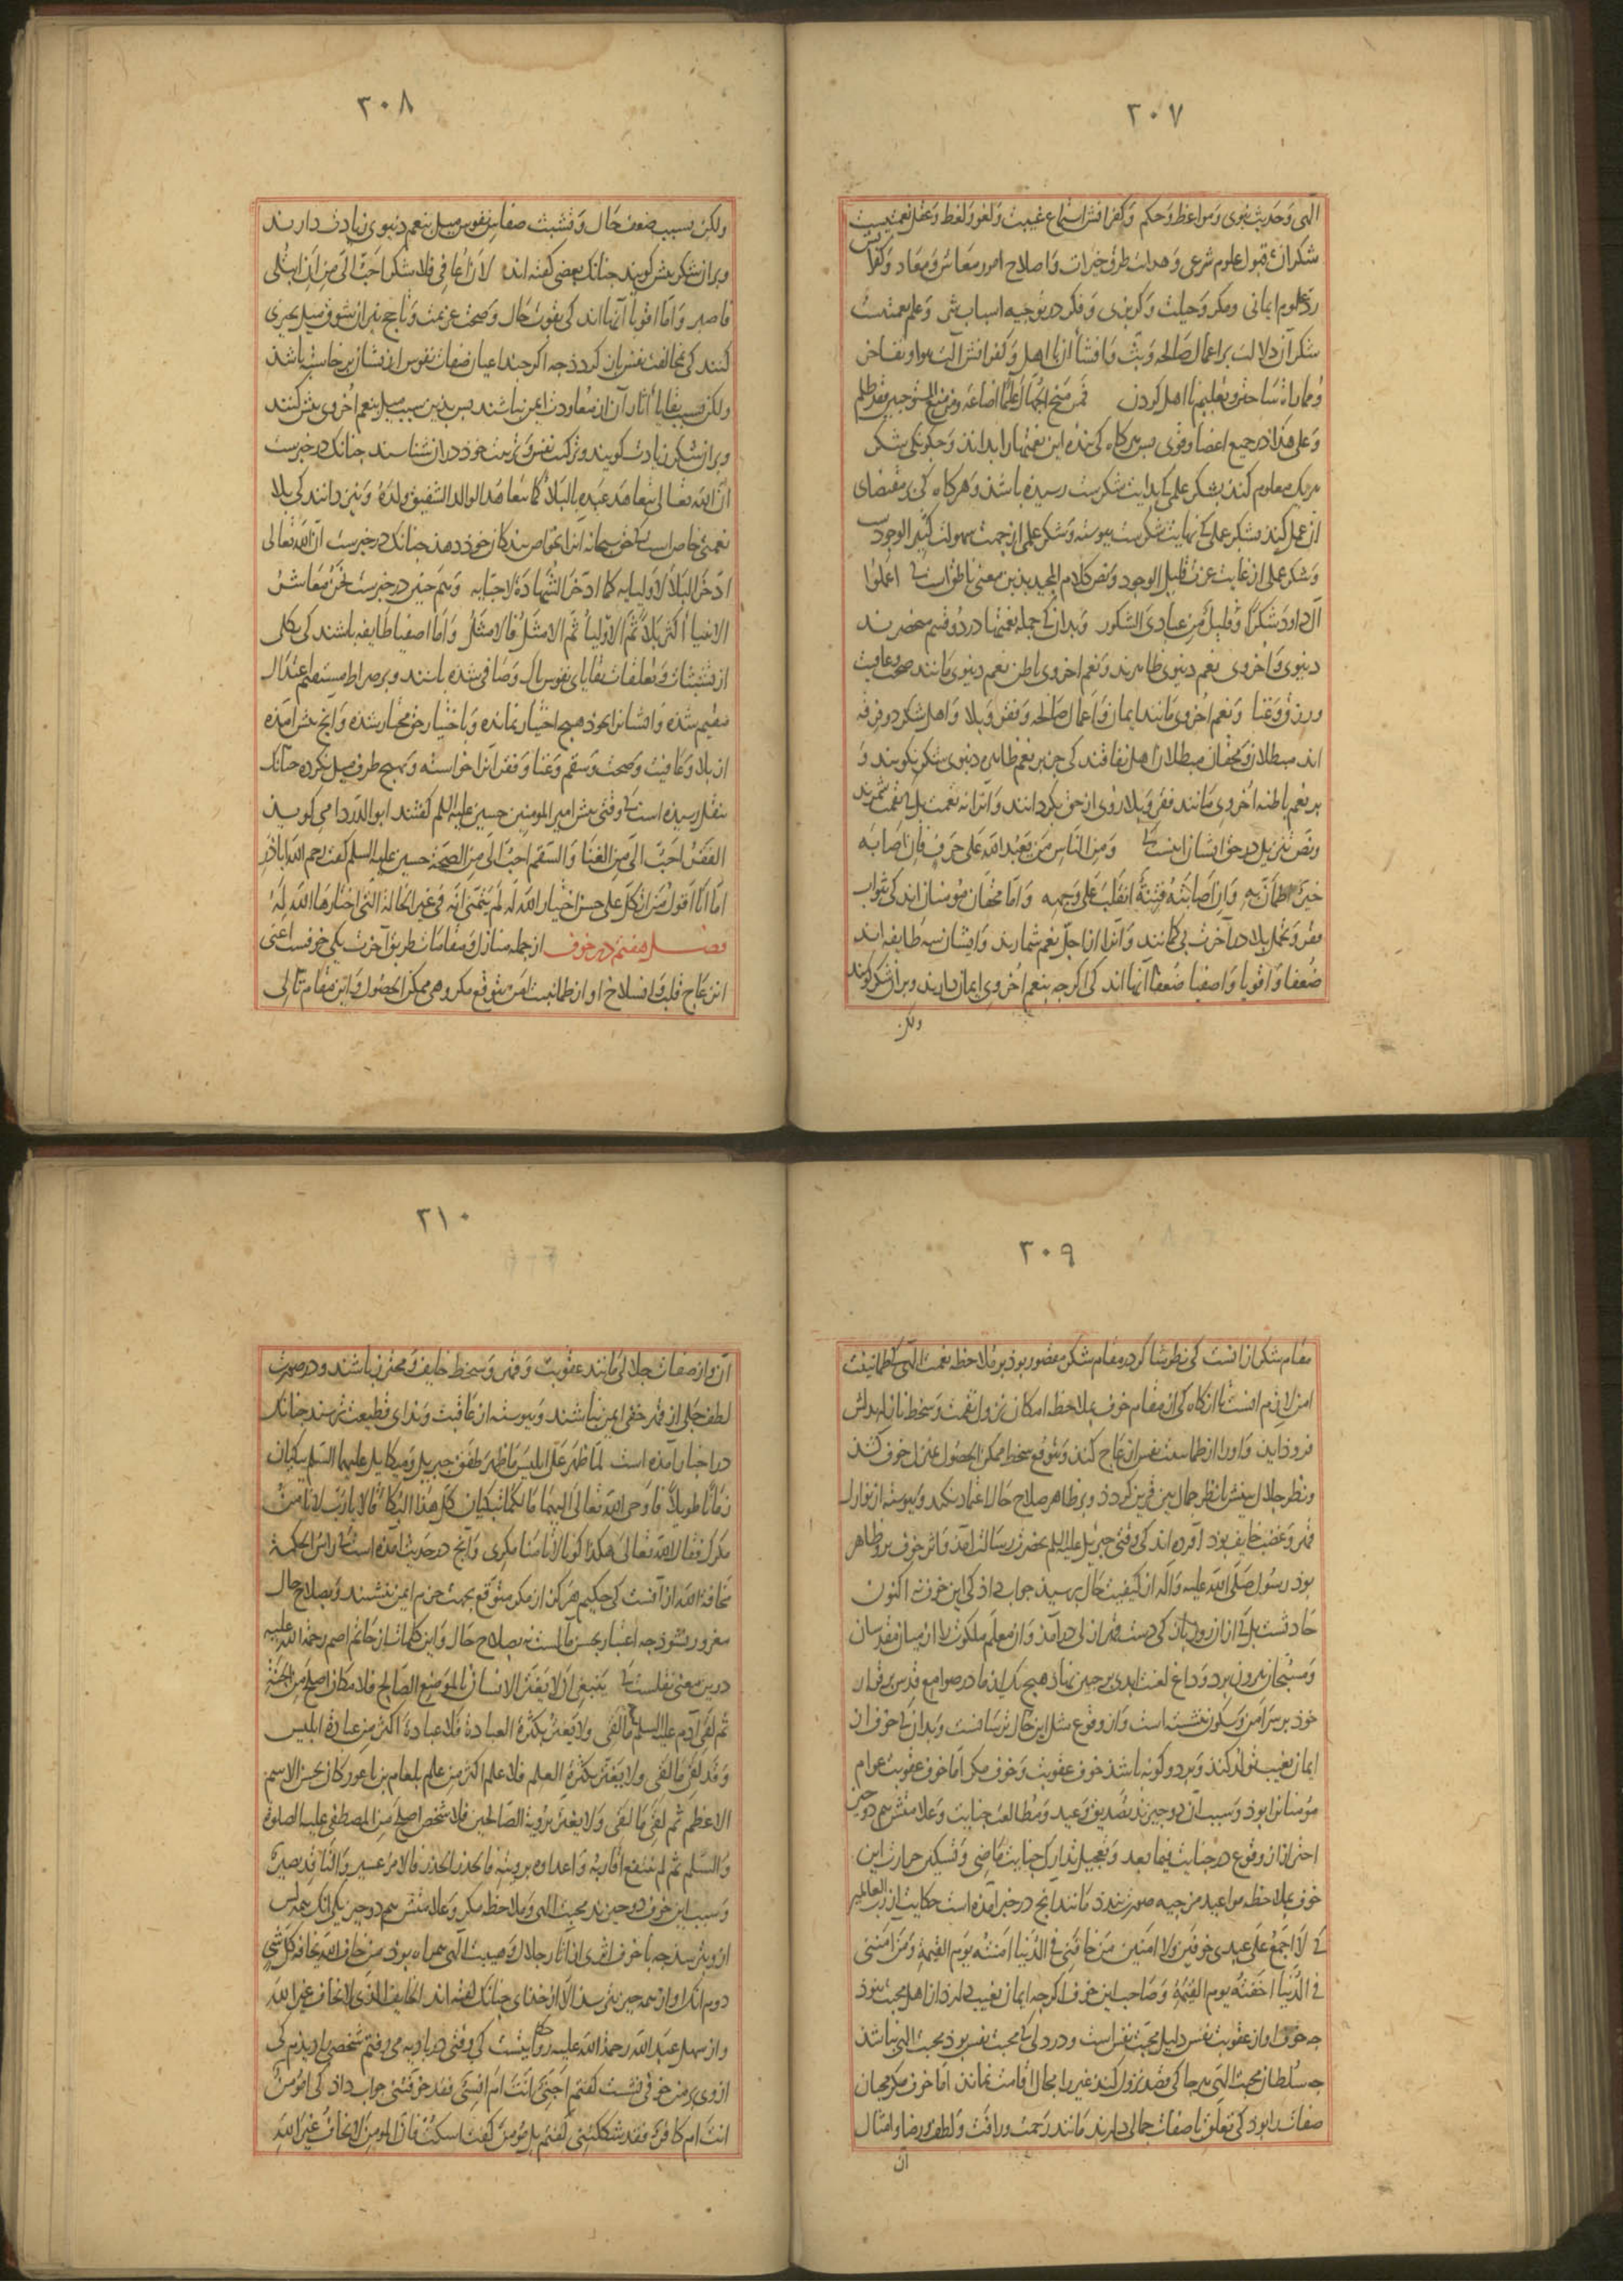 ٣٠٧
الهی و حدیث نبوی و مواعظ و حکم و کفرانش استماع غیبت و لغو و لغط و عقل نعمتیست
شکر آن قبول علوم شرعی و هدایت طرق خیرات و اصلاح امور معاش و معاد و کفرانش
رد علوم ایمانی و مکر و حیلت و کربزی و فکر در توجیه اسباب شر و علم نعمتیست
شکر آن دلالت بر اعمال صالحه و بث و افشا آن با اهل و کفرانش آلت هوا و تفاخر
و مماراة ساختن و تعلیم نااهل کردن فمن منح الجهال علما اضاعه و من منع المستوجبین فقد ظلم
و علی هذا در جمیع اعضا و قوی پس هرکاه کی بنده این نعمتها را بداند و چکونکی شکر
هر یک معلوم کند بشکر علمی کی بدایت شکرست رسیده باشد و هرکاه کی بر مقتضای
آن عمل کند بشکر عملی کی نهایت شکرست پیوسته و شکر علمی از جهت سهولت کثیر الوجودست
و شکر عملی از غایت عزت قلیل الوجود و نص کلام المجید بدین معنی ناطق است کی اعملوا
آل داود شکرا و قلیل من عبادی الشکور و بدان کی جمله نعمتها در دو قسم منحصرند
دنیوی و اخروی نعم دنیوی ظاهرند و نعم اخروی باطن نعم دنیوی مانند صحت و عافیت
و رزق و غنا و نعم اخروی مانند ایمان و اعمال صالحه و فقر و بلا و اهل شکر دو فرقه
اند مبطلان و محقان مبطلان اهل نفاقند کی جز بر نعم ظاهره دنیوی شکر نکویند و
بر نعم باطنه اخروی مانند فقر و بلا روی از حق بکردانند و آنرا نه نعمت بل کی نقمت شمرند
و نص تنزیل در حق ایشان اینست کی و من الناس من یعبد الله علی حرف فان اصابه
خیر اطمأن به و ان اصابته فتنة انقلب علی وجهه و اما محقان مؤمنان اند کی ثواب
فقر و تحمل بلا در آخرت بی کمانند و آنرا از اجل نعم شمارند و ایشان سه طایفه اند
ضعفا و اقویا و اصفیا ضعفا آنها اند کی اکرچه بنعم اخروی ایمان دارند و بر آن شکر کویند
ولکن
٣٠٨
ولکن بسبب ضعف حال و تشبث صفات نفوس میل بنعم دنیوی زیادت دارند
و بر آن شکر بیش کویند چنانک بعضی کفته اند لان اعافی فلاشکر احب الی من ان ابتلی
فاصبر و اما اقویا آنها اند کی بقوت حال و صحت عزیمت و تاجج نیران شوق میل بچیزی
کنند کی مخالفت نفس بآن کردد چه اکر چند اعیان صفات نفوس از ایشان برخاسته باشد
ولکن بسبب بقایا آثار آن از معاودت ایمن نباشند پس بدین سبب میل بنعم اخروی بیش کنند
و بر آن شکر زیادت کویند و تزکیت نفس و تربیت خود در آن شناسند چنانک در خبرست
ان الله تعالی یتعاهد عبده بالبلاء کما یتعاهد الوالد الشفیق ولده و نیز دانند کی بلا
نعمتی خاص است کی حق سبحانه آنرا بخواص بندکان خود دهد چنانک در خبرست ان الله تعالی
ادخر البلاء لاولیایه کما ادخر الشهادة لاحبابه و هم چنین در خبرست نحن معاشر
الانبیا أکثر بلاء ثم الاولیا ثم الامثل فالامثل و اما اصفیا طایفه باشند کی بکلی
از تشبثات و تعلقات بقایای نفوس پاک و صافی شده باشند و بر صراط مستقیم اعتدال
مقیم شده و ایشانرا بخود هیچ اختیار نمانده و باختیار حق مختار شده و آنچ پیش آمده
از بلا و عافیت و صحت و سقم و غنا و فقر آنرا خواسته و بهیچ طرف میل نکرده چنانک
بنقل رسیده است کی وقتی پیش امیر المومنین حسین علیه السلم کفتند ابو الدردا می کوید
الفقر احب الی من الغنا و السقم احب الی من الصحة حسین علیه السلم کفت رحم الله اباذر
اما انا اقول من اتکل علی حسن اختیار الله له لم یتمن انه فی غیر الحالة التی اختارها الله له
فصل هفتم در خوف از جمله منازل و مقامات طریق آخرت یکی خوفست اعنی
انزعاج قلب و انسلاخ او از طمانینت امن بتوقع مکروهی ممکن الحصول و این مقام تالی
٣٠٩
مقام شکر از آنست کی نظر شاکر در مقام شکر مقصور بود بر ملاحظه نعمت الهی کی طمانینت
امن لازم آنست تا آنکاه کی از مقام خوف بملاحظه امکان نزول نقمت و سخط نازله بدلش
فروذآید و او را از طمانینت نفس انزعاج کند و بتوقع سخط ممکن الحصول بمنزل خوف کشد
و نظر جلال بینش با نظر جمال بین قرین کردد و بر ظاهر صلاح حال اعتماد نکند و پیوسته از نوازل
قهر و غضب خایف بود آورده اند کی وقتی جبریل علیه السلم بحضرت رسالت آمد و اثر خوف برو ظاهر
بود رسول صلی الله علیه و آله از کیفیت حال پرسید جواب داد کی این خوف نه اکنون
حادثست بل کی از آن روز باز کی دست قهر ازلی درآمد و آن معلم ملکوت را از میان مقدسان
و مسبحان بیرون برد و داغ لعنت ابدی بر جبین نهاد هیچ یک از ما در صوامع قدس برقرار
خود بر سر امن و سکون ننشسته است و از وقوع مثل این حال ترسانست و بدان کی خوف از
ایمان بغیب تولد کند و بر دو کونه باشد خوف عقوبت و خوف مکر اما خوف عقوبت عوام
مؤمنانرا بود و سبب آن دو چیزند تصدیق وعید و مطالعت جنایت و علامتش هم دو چیز
احتراز از وقوع در جنایت فیما بعد و تعجیل تدارک جنایت ماضی و تسکین حرارت این
خوف بملاحظه مواعید مرجیه صورت بندد مانند آنچ در خبر آمده است حکایت از رب العالمین
کی لا اجمع علی عبدی خوفین ولا امنین من خافنی فی الدنیا امنته یوم القیمة و من امننی
فی الدنیا اخفته یوم القیمة و صاحب این خوف اکرچه ایمان بغیب دارد از اهل محبت نبود
چه خوف او از عقوبت نفس دلیل محبت نفس است و در دلی کی محبت نفس بود محبت الهی نباشد
چه سلطان محبت الهی هر جا کی قصد نزول کند غیر را مجال اقامت نماند اما خوف مکر محبان
صفات را بود کی تعلق باصفات جمالی دارند مانند رحمت و رافت و لطف و رضا و امثال
آن
٣١٠
آن و از صفات جلالی مانند عقوبت و قهر و سخط خایف و محترز باشند و در صورت
لطف جلی از قهر خفی ایمن نباشند و پیوسته از عاقبت و ندای قطیعت ترسند چنانک
در اخبار آمده است لما ظهر علی ابلیس ما ظهر طفق جبریل و میکایل علیهما السلم یبکیان
زمانا طویلا فاوحی الله تعالی الیهما ما لکما تبکیان کل هذا البکاء قالا یا رب لا نامن
مکرک فقال الله تعالی هکذا کونا لا تامنا مکری و آنچ در حدیث آمده است کی راس الحکمة
مخافة الله از آنست کی حکیم هرکز از مکر متوقع بجهت حزم ایمن ننشیند و بصلاح حال
مغرور نشود چه اعتبار بحسن مآلست نه بصلاح حال و این کلمات از حاتم اصم رحمة الله علیه
درین معنی نقلست کی ینبغی ان لا یغتر الانسان بالموضع الصالح فلا مکان اصلح من الجنة
ثم لقی آدم علیه السلم ما لقی ولا یغتر بکثرة العبادة فلا عبادة اکثر من عبادة ابلیس
و قد لقی ما لقی ولا یغتر بکثرة العلم فلا علم اکثر من علم بلعام بن باعور کان یحسن الاسم
الاعظم ثم لقی ما لقی ولا یغتر برؤیة الصالحین فلا شخص اصلح من المصطفی علیه الصلوة
والسلم ثم لم ینتفع اقاربه و اعداوه برویته فالحذر الحذر فالامر عسیر والناقد بصیر
و سبب این خوف دو چیزند محبت الهی و ملاحظه مکر و علامتش هم دو چیز یکی آنک همه کس
ازو بترسد چه با خوف اثری از آثار جلال و هیبت الهی همراه بود من خاف الله یخافه کل شی
دوم آنک او از همه چیز بترسد الا از خدای چنانک کفته اند الخایف الذی لا یخاف غیر الله
و از سهل عبد الله رحمة الله علیه روایتست کی وقتی در بادیه می رفتم شخصی را دیدم کی
از وی بر من خوفی نشست کفتم اجنی انت ام انسی فقد خوفتنی جواب داد کی امؤمن
انت ام کافر فقد شککتنی کفتم بل مؤمن کفت اسکت فان المومن لا یخاف غیر الله